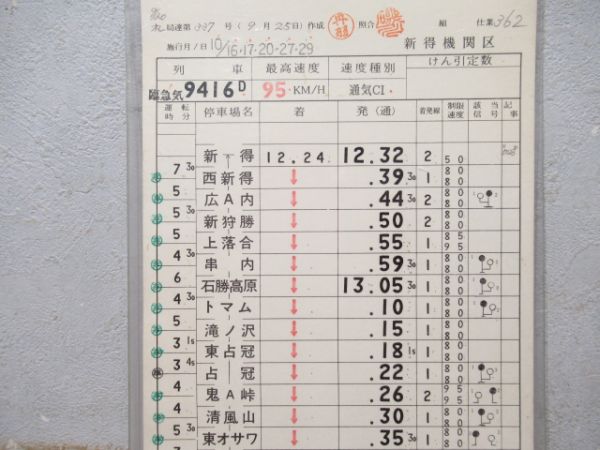 局達第337号(9月25日)作成 照合 組 仕業362
施行月/日 10/16·17·20·27·29 新得機関区
列車 最高速度 速度種別 けん引定数
臨急気9416D 95 KM/H 通気C1
運転時分 停車場名 着 発(通) 着発線 制限速度 該当信号 記事
新得 12.24 12.32 2 50
7 30
西新得 ↓ .39 30 1 80 80
5
広A内 ↓ .44 30 2 80 80
5 30
新狩勝 ↓ .50 2 80 80
5
上落合 ↓ .55 1 85 95
4 30
串内 ↓ .59 30 1 80 80
6
石勝高原 ↓ 13.05 30 1 80 80
4 30
トマム ↓ .10 1 80 80
5
滝ノ沢 ↓ .15 1 80 80
3 15
東占冠 ↓ .18 15 1 80 80
3 45
占冠 ↓ .22 1 80 80
4
鬼A峠 ↓ .26 2 95 95
4
清風山 ↓ .30 1 80 80
5 30
東オサワ ↓ .35 30 1 80 80